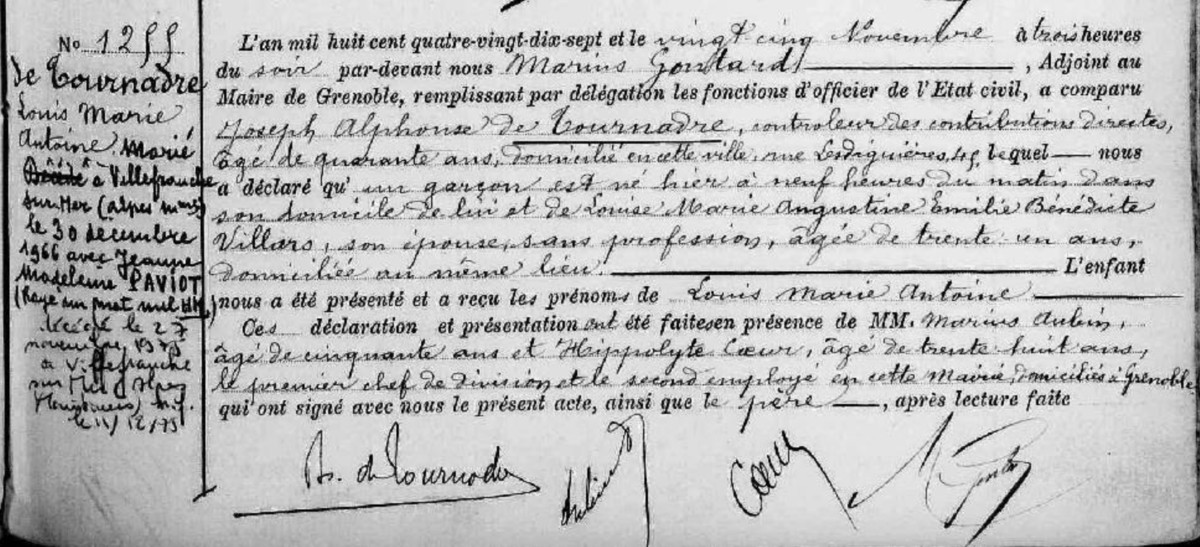 No 1255
de Tournadre
Louis Marie
Antoine, Marié
à Villefranche
sur Mer (Alpes Mmes)
le 30 decembre
1966 avec Jeanne
Madeleine PAVIOT
décédé le 27
novembre 1975
à Villefranche
sur Mer (Alpes
Maritimes)
le 11/12/75
L'an mil huit cent quatre-vingt-dix-sept et le vingt cinq Novembre à trois heures
du soir par-devant nous Marius Gontard, Adjoint au
Maire de Grenoble, remplissant par délégation les fonctions d'officier de l'Etat civil, a comparu
Joseph Alphonse de Tournadre, controleur des contributions directes,
âgé de quarante ans, domicilié en cette ville, rue Lesdiguières, 45, lequel nous
a déclaré qu'un garçon est né hier à neuf heures du matin dans
son domicile de lui et de Louise Marie Angustine Emilie Bénédicte
Villars, son épouse, sans profession, âgée de trente un ans,
domiciliée au même lieu. L'enfant
nous a été présenté et a reçu les prénoms de Louis Marie Antoine
Ces déclaration et présentation ont été faites en présence de MM. Marius Aubin,
âgé de cinquante ans et Hippolyte Cœur, âgé de trente huit ans,
le premier chef de division et le second employé en cette Mairie, domiciliés à Grenoble
qui ont signé avec nous le présent acte, ainsi que le père, après lecture faite
de Tournadre
Aubin
Cœur